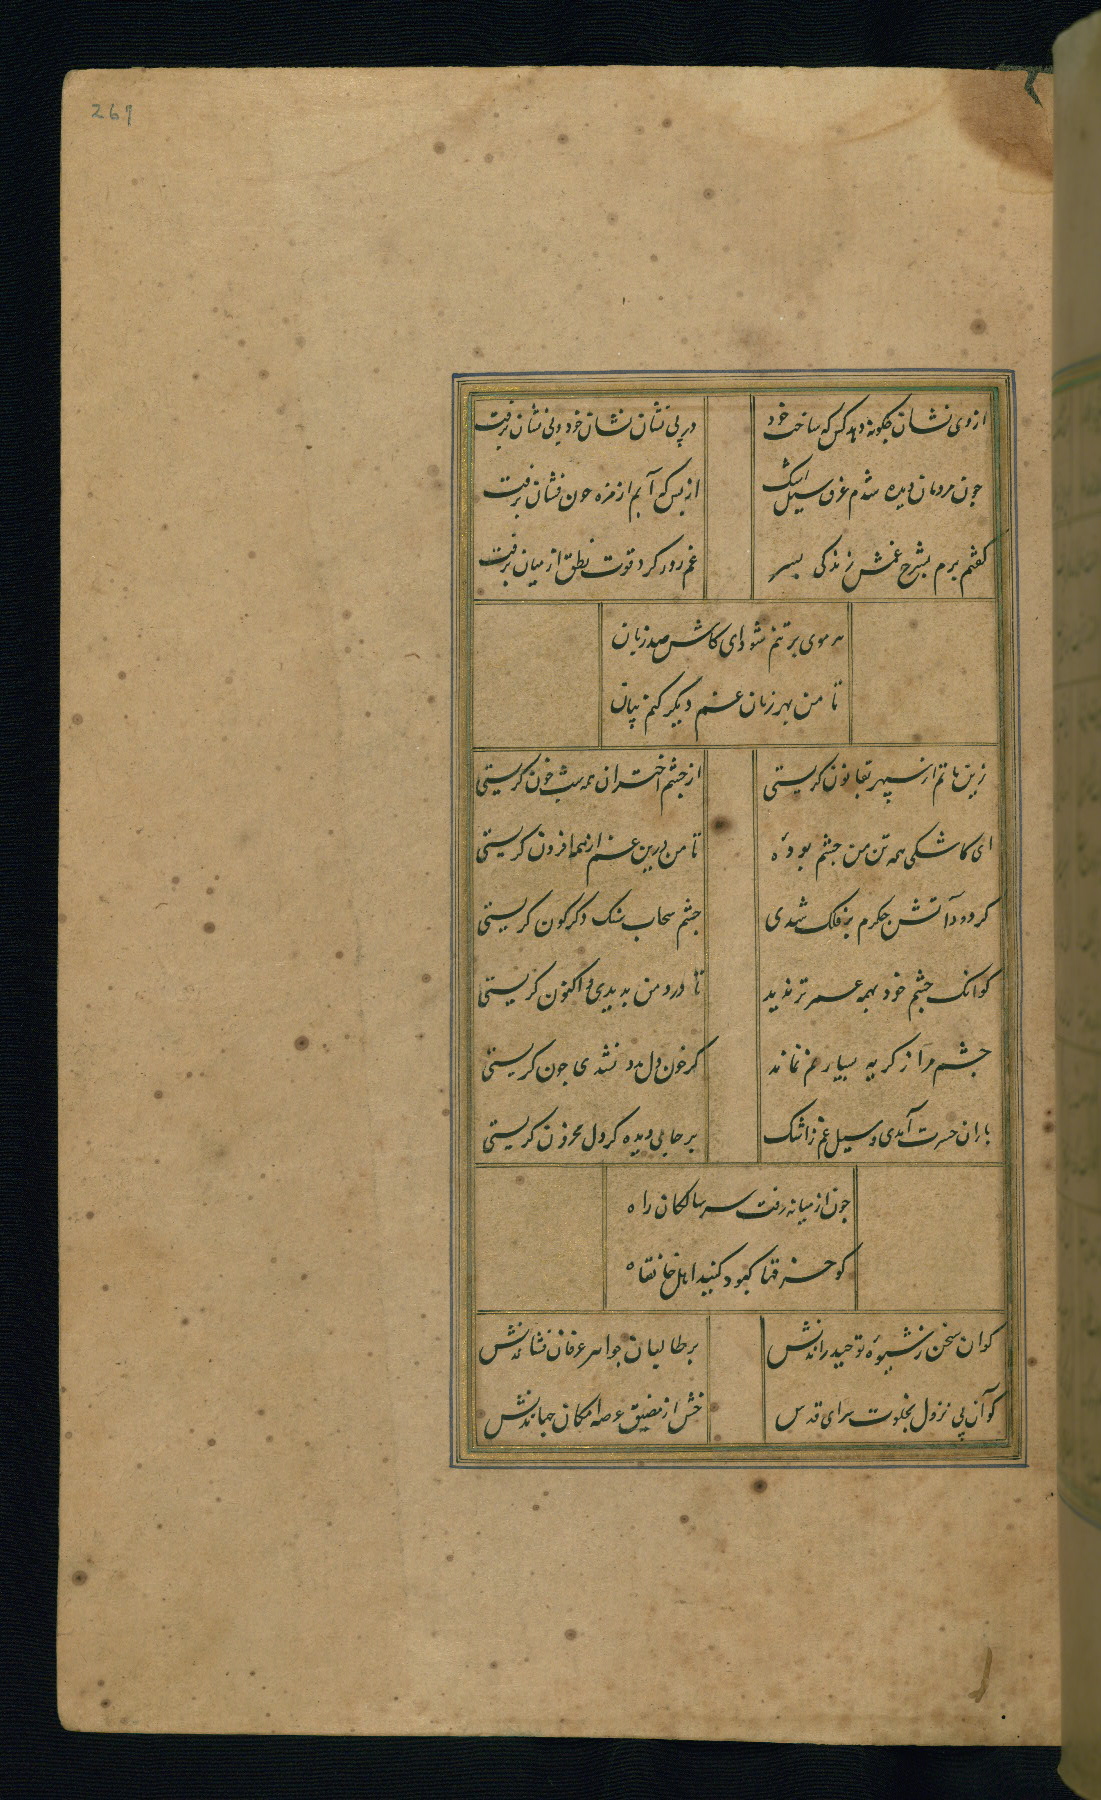 269
از وی نشان چکونه دهد کس که ساخت خود
در بی نشان نشان خود و بی نشان برفت
چون مردمان دیده شدم غرق سیل اشک
از بس که آبم از مژه خون فشان برفت
کفتم برم بشرح غمش زندکی بسر
غم زور کرد قوت نطق از میان برفت
هر موی بر تنم شود ای کاش صد زبان
تا من بهر زبان غم دیکر کنم بیان
زین ماتم ار سپهر بقانون کریستی
از چشم اختران همه شب خون کریستی
ای کاشکی همه تن من چشم بودئ
تا من درین غم از همه افزون کریستی
کر دود آتش جکرم بر فلک شدی
چشم سحاب سنک دکرکون کریستی
کو انک چشم خود بهمه عمر تر ندید
تا درد من بدیدی و اکنون کریستی
چشم مرا ز کریه بسیار نم نماند
کر خون دل مدد نشدی چون کریستی
باران حسرت آمدی و سیل غم ز اشک
بر جا دیده کر دل محزون کریستی
چون از میانه رفت سر سالکان راه
کو خرقها کبود کنید اهل خانقاه
کو ان سخن ز شیوهٔ توحید راندنش
بر طالبان جواهر عرفان فشاندنش
کو آن پی نزول بخلوت سرای قدس
رخش از مضیق عرصه امکان جهاندنش